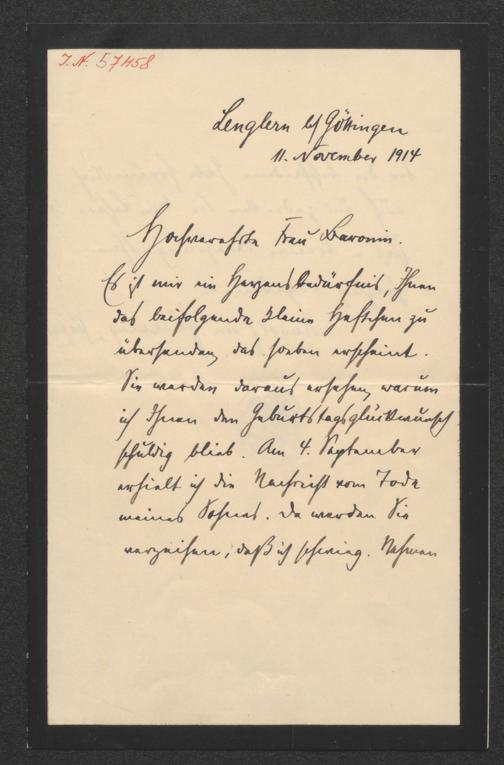 J.N. 57458
Lenglern b/ Göttingen
11. November 1914
Hochverehrte Frau Baronin.
Es ist mir ein Herzensbedürfnis, Ihnen
das beifolgende kleine Heftchen zu
übersenden, das soeben erscheint.
Sie werden daraus ersehen, warum
ich Ihnen den Geburtstagsglückwunsch
schuldig blieb. Am 4. September
erhielt ich die Nachricht vom Tode
meines Sohnes. Da werden Sie
verzeihen, daß ich schwieg. Nehmen